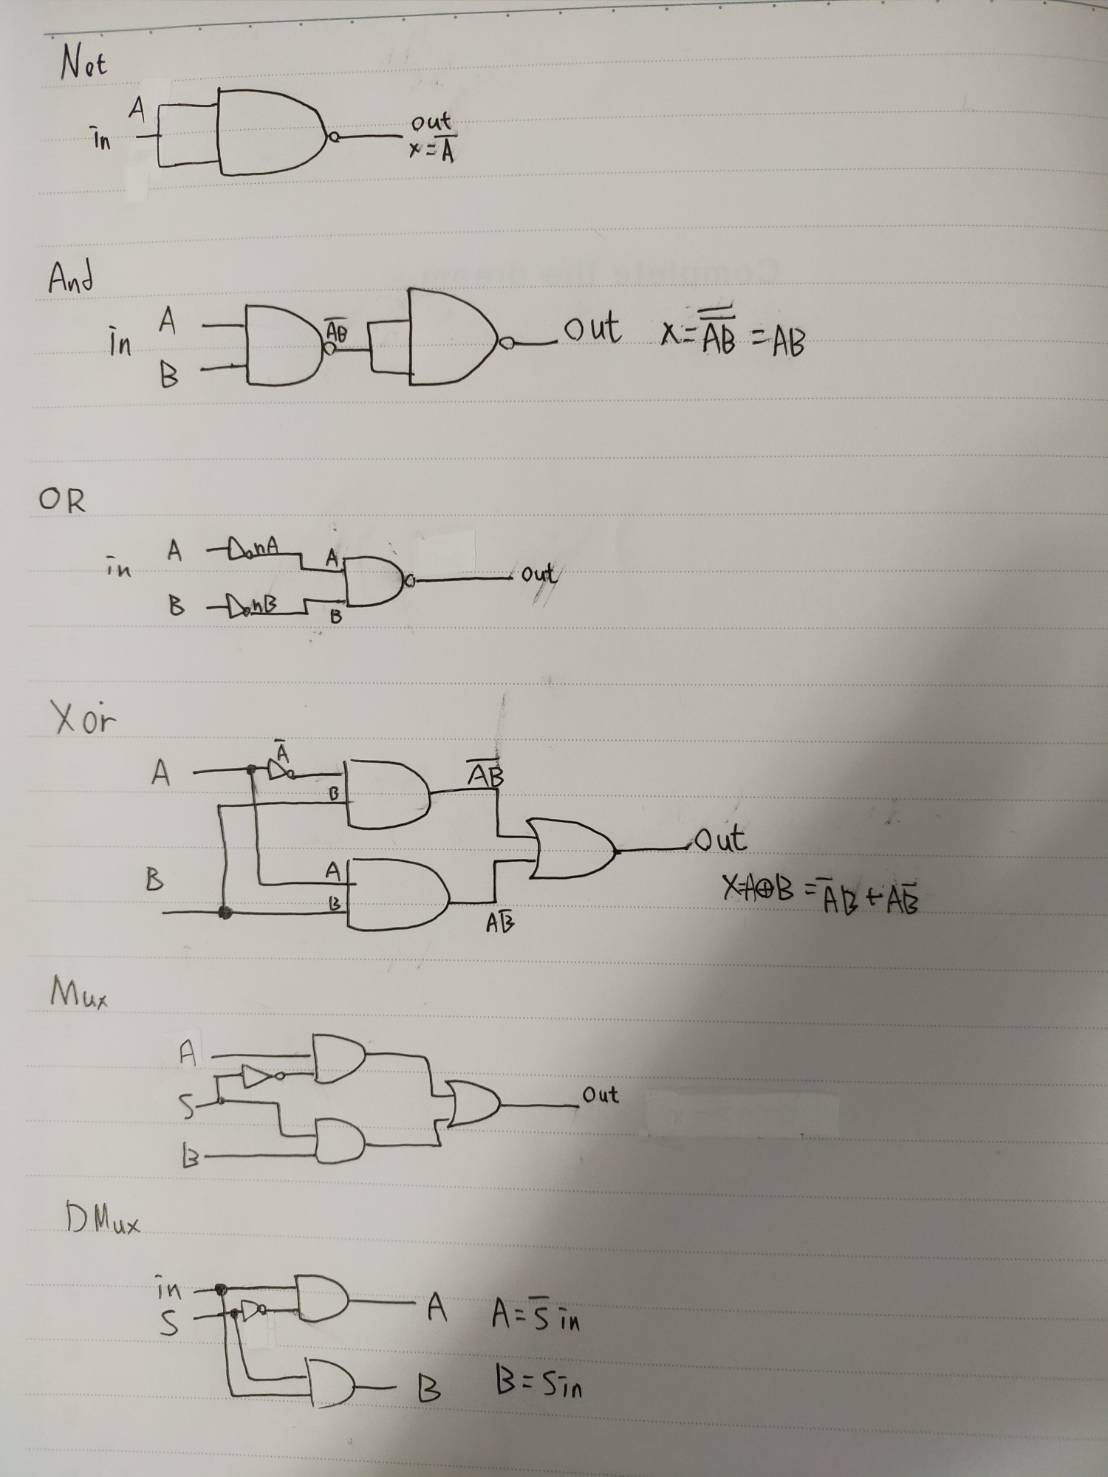 Not
A
in
out
x = A̅
And
in
A
B
A̅B̅
out
x = A̿B̿ = AB
OR
in
A
nA
A
B
nB
B
out
Xor
A
A̅
B
A̅B̅
out
B
A
B
AB̅
X=A⊕B = A̅B + AB̅
Mux
A
S
B
out
DMux
in
S
A
A = S̅ in
B
B = S in